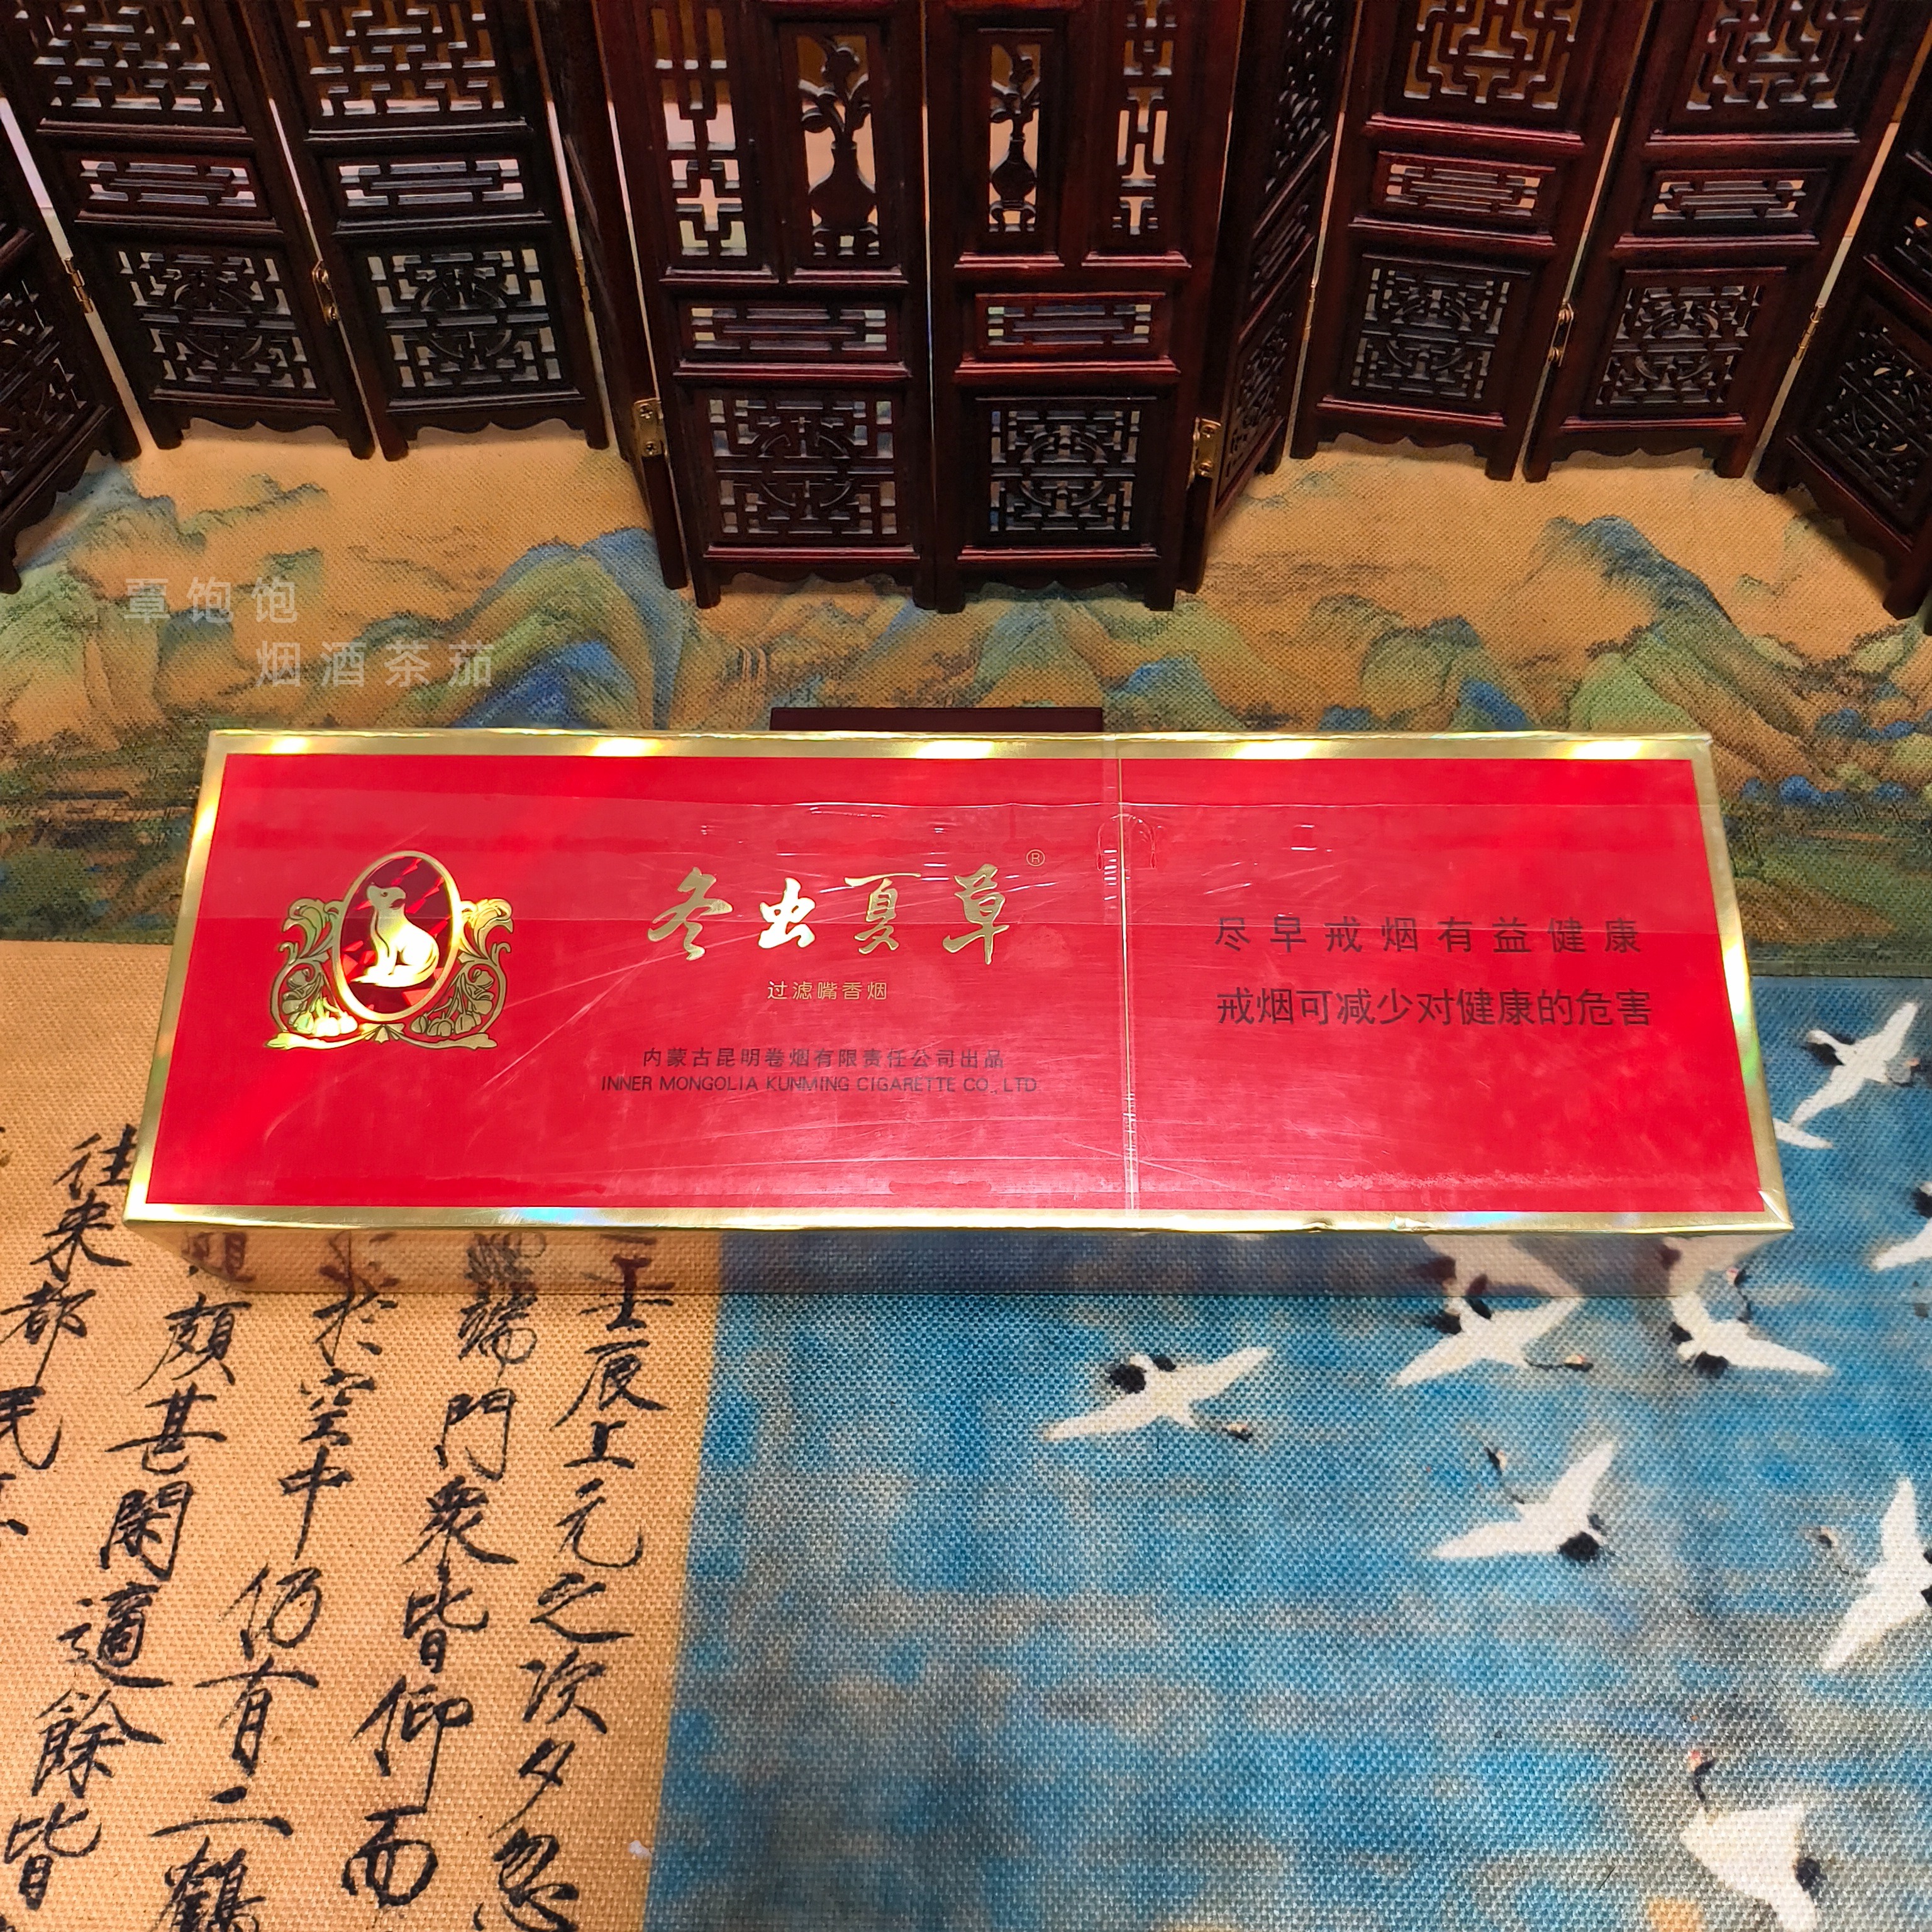 覃饱饱
烟酒茶茄
冬虫夏草®
过滤嘴香烟
内蒙古昆明卷烟有限责任公司出品
INNER MONGOLIA KUNMING CIGARETTE CO., LTD.
尽早戒烟有益健康
戒烟可减少对健康的危害
壬辰上元之次夕忽
端門衆皆仰而
於空中仍有二鶴
頗甚閑適餘皆
往来都民